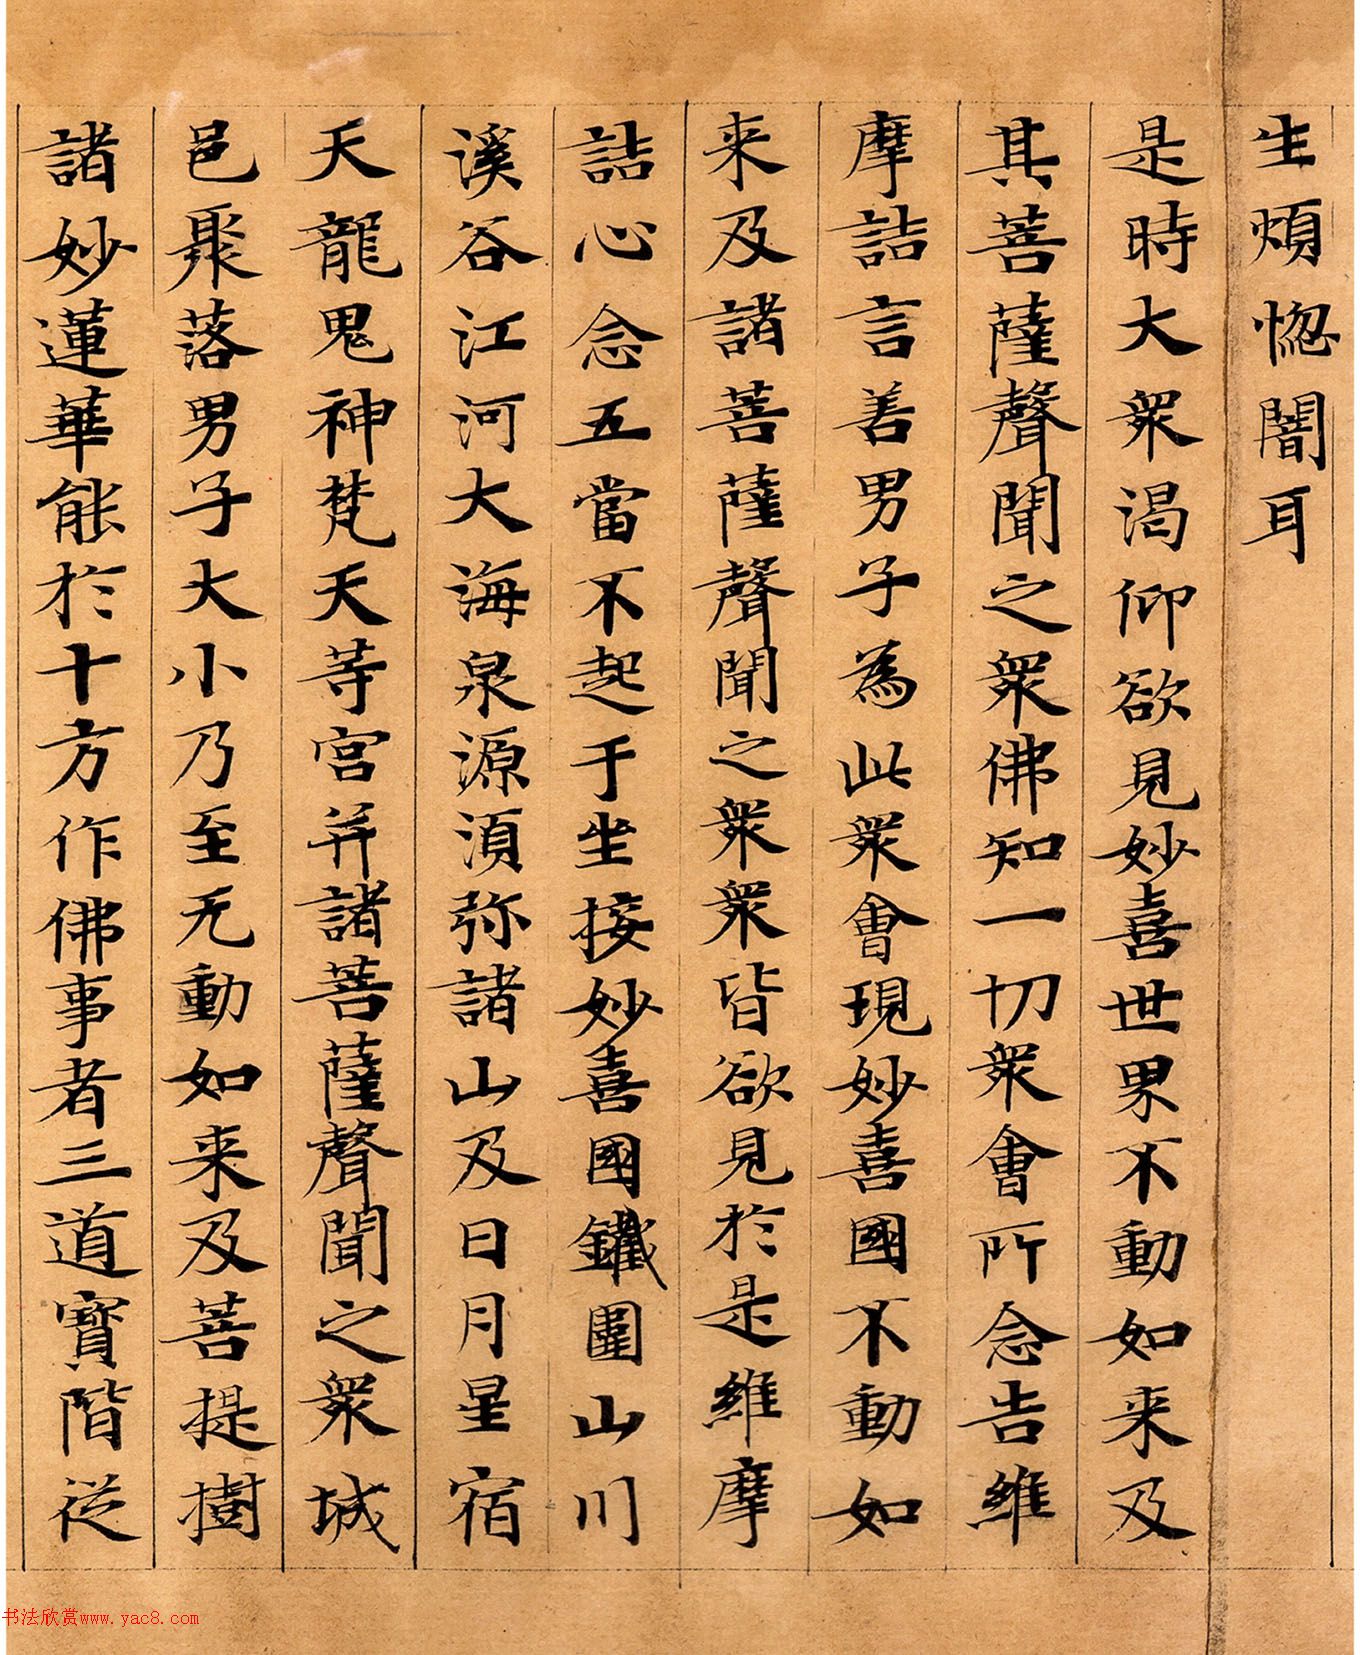 生煩惚闇耳
是時大衆渴仰欲見妙喜世界不動如来及
其菩薩聲聞之衆佛知一切衆會所念告維
摩詰言善男子為此衆會現妙喜國不動如
来及諸菩薩聲聞之衆衆皆欲見於是維摩
詰心念五當不起于坐接妙喜國鐵圍山川
溪谷江河大海泉源湏弥諸山及日月星宿
天龍鬼神梵天等宮并諸菩薩聲聞之衆城
邑聚落男子大小乃至无動如来及菩提樹
諸妙蓮華能於十方作佛事者三道寳階從
书法欣赏www.yac8.com